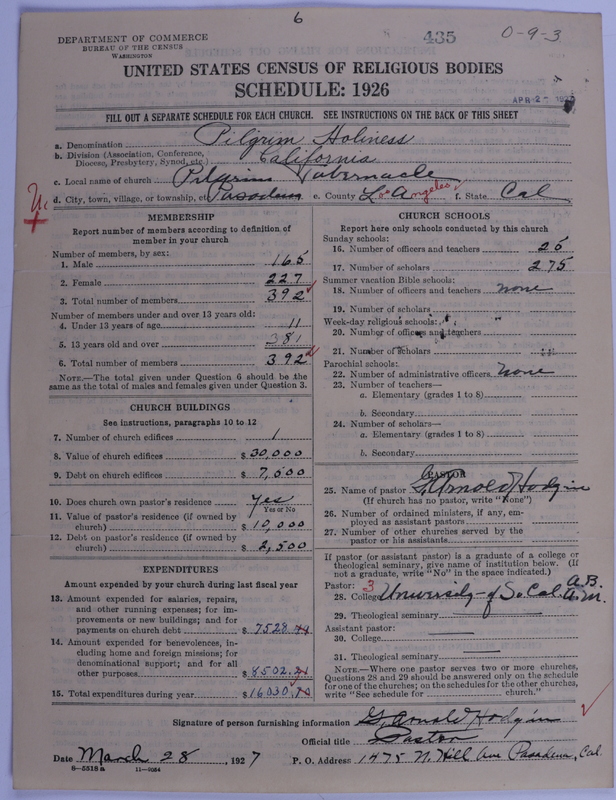 6
DEPARTMENT OF COMMERCE
BUREAU OF THE CENSUS
WASHINGTON
435
0-9-3
UNITED STATES CENSUS OF RELIGIOUS BODIES
SCHEDULE: 1926
APR 2
FILL OUT A SEPARATE SCHEDULE FOR EACH CHURCH. SEE INSTRUCTIONS ON THE BACK OF THIS SHEET
a. Denomination Pilgrim Holiness
b. Division (Association, Conference, Diocese, Presbytery, Synod, etc.) California
c. Local name of church Pilgrim Tabernacle
d. City, town, village, or township, etc. Pasadena e. County Los Angeles f. State Cal
MEMBERSHIP
Report number of members according to definition of
member in your church
Number of members, by sex:
1. Male 165
2. Female 227
3. Total number of members 392
Number of members under and over 13 years old:
4. Under 13 years of age 11
5. 13 years old and over 381
6. Total number of members 392
NOTE.—The total given under Question 6 should be
same as the total of males and females given under Question 3.
CHURCH BUILDINGS
See instructions, paragraphs 10 to 12
7. Number of church edifices 1
8. Value of church edifices $ 30,000
9. Debt on church edifices $ 7,500
10. Does church own pastor's residence Yes
Yes or No
11. Value of pastor's residence (if owned by
church) $ 10,000
12. Debt on pastor's residence (if owned by
church) $ 2,500
EXPENDITURES
Amount expended by your church during last fiscal year
13. Amount expended for salaries, repairs,
and other running expenses; for im-
provements or new buildings; and for
payments on church debt $ 7528.
14. Amount expended for benevolences, in-
cluding home and foreign missions; for
denominational support; and for all
other purposes $ 8502.
15. Total expenditures during year $ 16030.
CHURCH SCHOOLS
Report here only schools conducted by this church
Sunday schools:
16. Number of officers and teachers 25
17. Number of scholars 275
Summer vacation Bible schools:
18. Number of officers and teachers none
19. Number of scholars
Week-day religious schools:
20. Number of officers and teachers
21. Number of scholars
Parochial schools:
22. Number of administrative officers none
23. Number of teachers—
a. Elementary (grades 1 to 8)
b. Secondary
24. Number of scholars—
a. Elementary (grades 1 to 8)
b. Secondary
PASTOR
25. Name of pastor G. Arnold Hodgin
(If church has no pastor, write "None")
26. Number of ordained ministers, if any, em-
ployed as assistant pastors
27. Number of other churches served by the
pastor or his assistants
If pastor (or assistant pastor) is a graduate of a college or
theological seminary, give name of institution below. (If
not a graduate, write "No" in the space indicated.)
Pastor: 3
28. College University of So. Cal. A.B. A.M.
29. Theological seminary
Assistant pastor:
30. College
31. Theological seminary
NOTE.—Where one pastor serves two or more churches,
Questions 28 and 29 should be answered only on the schedule
for one of the churches; on the schedules for the other churches,
write "See schedule for church."
Signature of person furnishing information G. Arnold Hodgin
Official title Pastor
Date March 28, 1927 P. O. Address 1475 N. Hill Ave Pasadena, Cal.
8—5518 a 11—9054